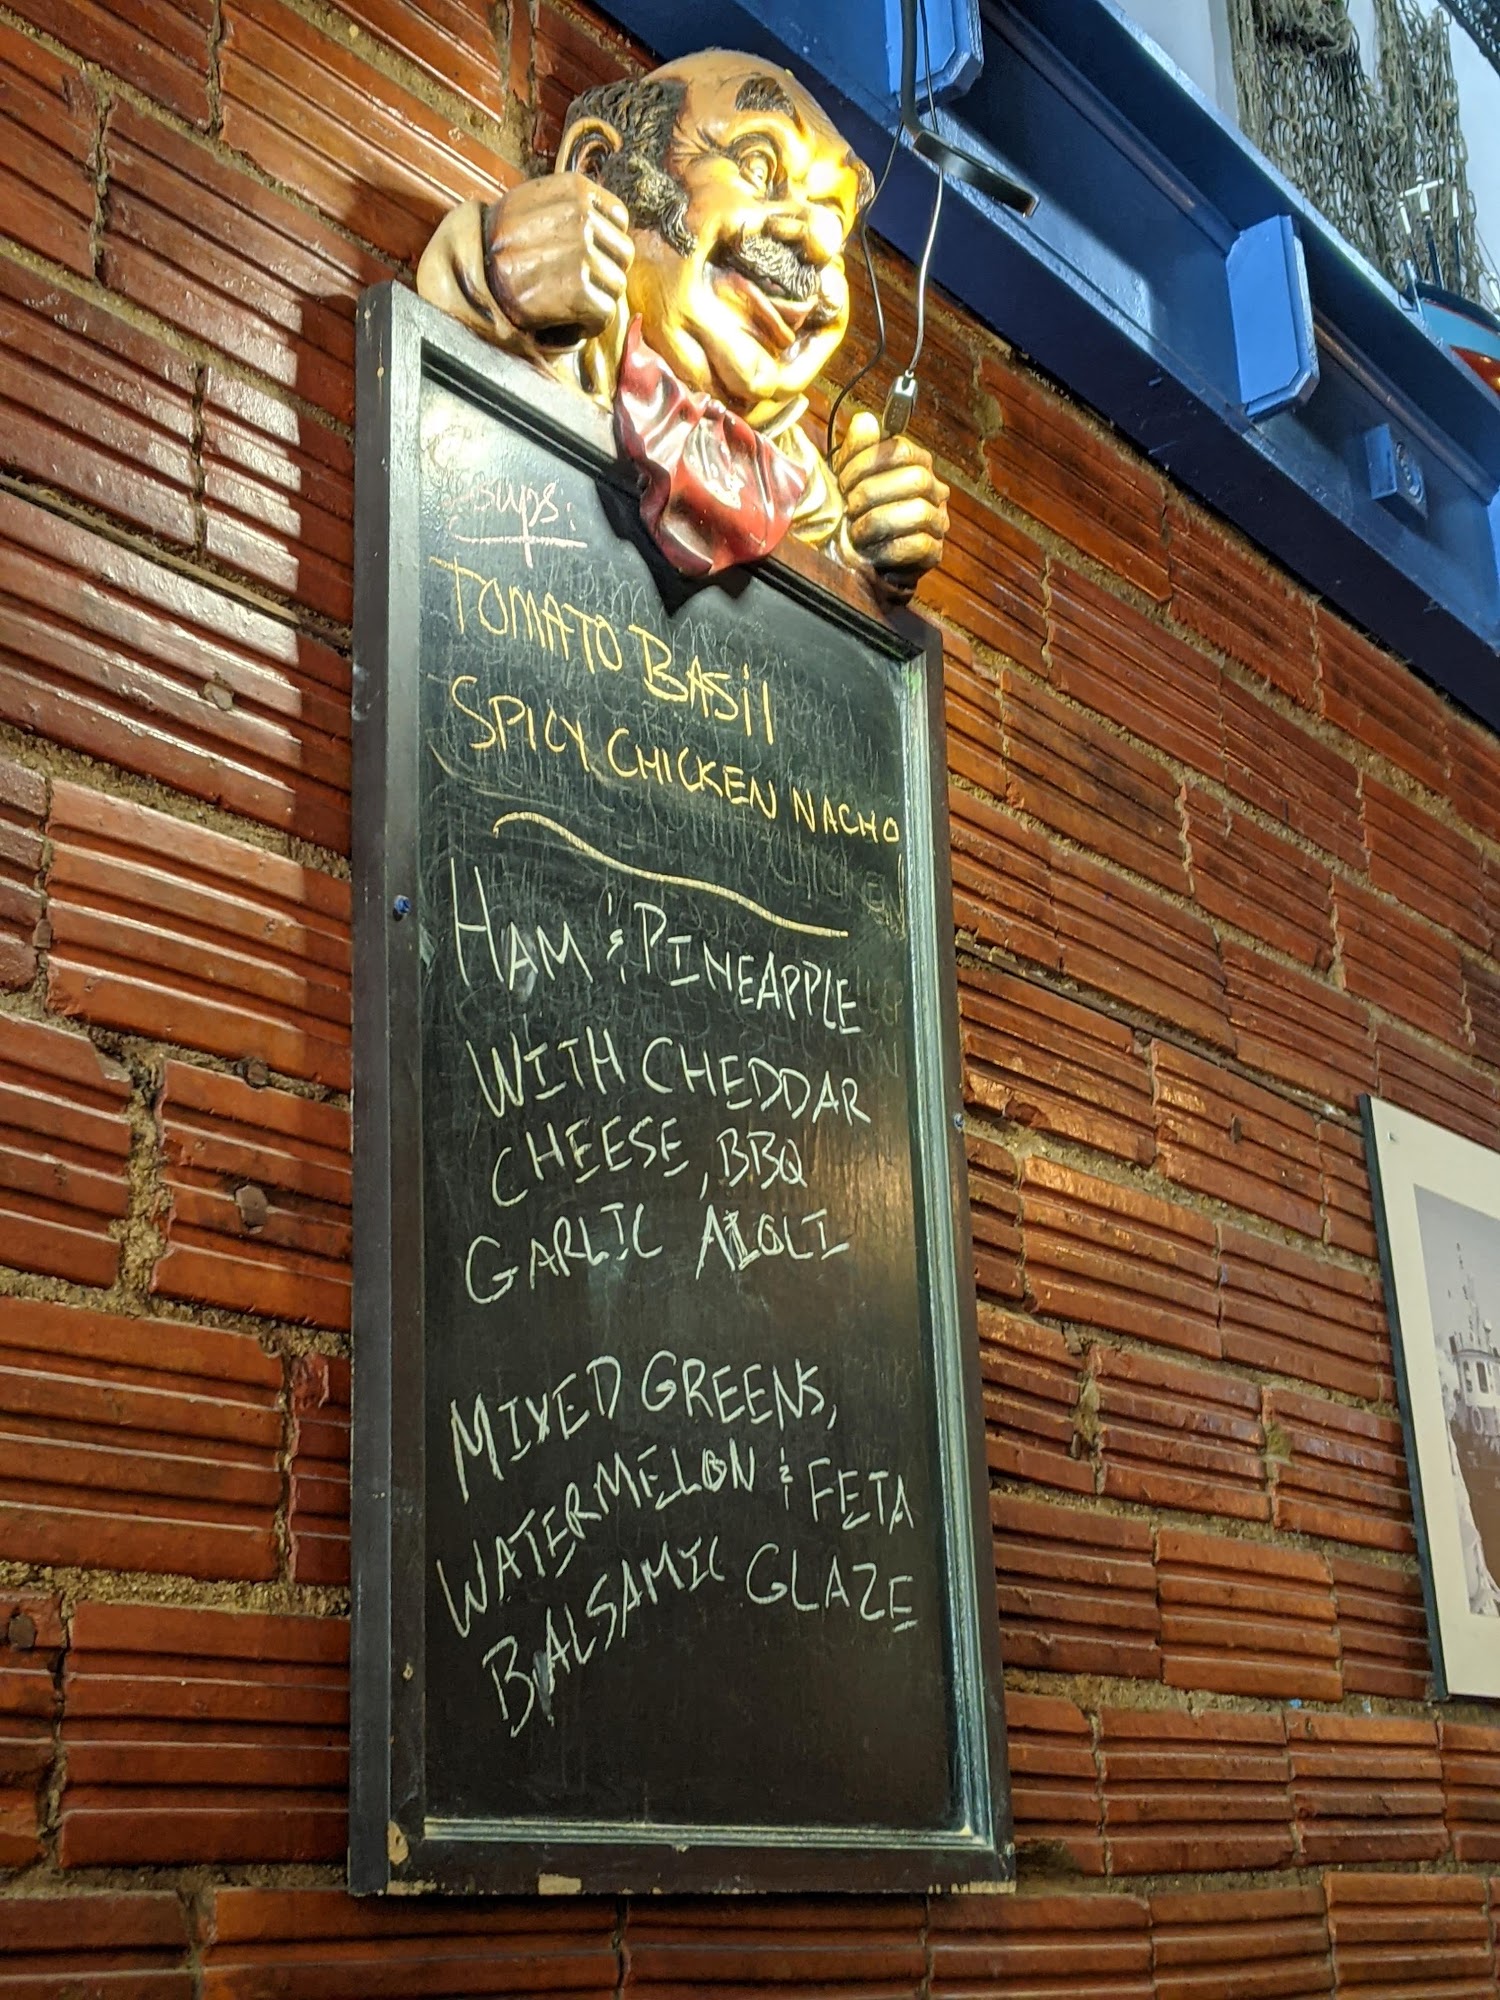 Soups:
TOMATO BASil
SPICY CHICKEN NACHO
HAM & PINEAPPLE
WITH CHEDDAR
CHEESE, BBQ
GARLIC AIOLI
MIXED GREENS,
WATERMELON & FETA
BALSAMIC GLAZE